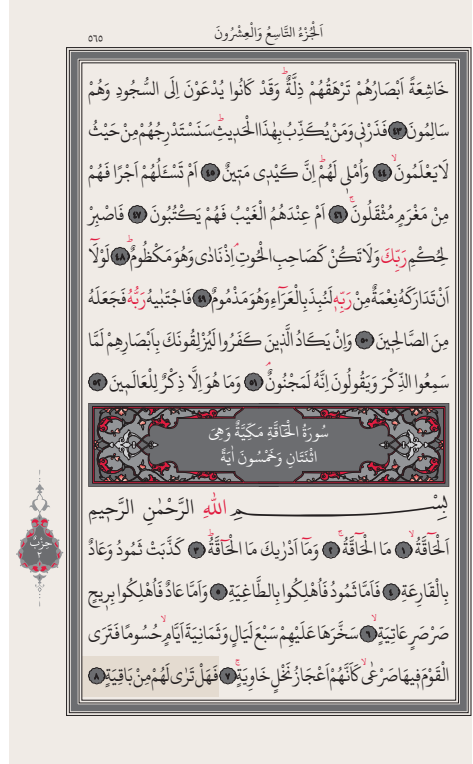 اَلْجُزْءُ التَّاسِعُ وَالْعِشْرُونَ
٥٦٥
خَاشِعَةً اَبْصَارُهُمْ تَرْهَقُهُمْ ذِلَّةٌۜ وَقَدْ كَانُوا يُدْعَوْنَ اِلَى السُّجُودِ وَهُمْ
سَالِمُونَ ﴿٤٣﴾ فَذَرْنٖي وَمَنْ يُكَذِّبُ بِهٰذَا الْحَدٖيثِۜ سَنَسْتَدْرِجُهُمْ مِنْ حَيْثُ
لَا يَعْلَمُونَۙ ﴿٤٤﴾ وَاُمْلٖي لَهُمْۜ اِنَّ كَيْدٖي مَتٖينٌ ﴿٤٥﴾ اَمْ تَسْـَٔلُهُمْ اَجْرًا فَهُمْ
مِنْ مَغْرَمٍ مُثْقَلُونَۚ ﴿٤٦﴾ اَمْ عِنْدَهُمُ الْغَيْبُ فَهُمْ يَكْتُبُونَ ﴿٤٧﴾ فَاصْبِرْ
لِحُكْمِ رَبِّكَ وَلَا تَكُنْ كَصَاحِبِ الْحُوتِۢ اِذْ نَادٰى وَهُوَ مَكْظُومٌۜ ﴿٤٨﴾ لَوْلَٓا
اَنْ تَدَارَكَهُ نِعْمَةٌ مِنْ رَبِّهٖ لَنُبِذَ بِالْعَرَٓاءِ وَهُوَ مَذْمُومٌ ﴿٤٩﴾ فَاجْتَبٰيهُ رَبُّهُ فَجَعَلَهُ
مِنَ الصَّالِحٖينَ ﴿٥٠﴾ وَاِنْ يَكَادُ الَّذٖينَ كَفَرُوا لَيُزْلِقُونَكَ بِاَبْصَارِهِمْ لَمَّا
سَمِعُوا الذِّكْرَ وَيَقُولُونَ اِنَّهُ لَمَجْنُونٌۢ ﴿٥١﴾ وَمَا هُوَ اِلَّا ذِكْرٌ لِلْعَالَمٖينَ ﴿٥٢﴾
سُورَةُ الْحَاقَّةِ مَكِّيَّةٌ وَهِىَ
اثْنَتَانِ وَخَمْسُونَ اٰيَةً
بِسْمِ اللّٰهِ الرَّحْمٰنِ الرَّحٖيمِ
اَلْحَٓاقَّةُۙ ﴿١﴾ مَا الْحَٓاقَّةُۚ ﴿٢﴾ وَمَٓا اَدْرٰيكَ مَا الْحَٓاقَّةُۜ ﴿٣﴾ كَذَّبَتْ ثَمُودُ وَعَادٌ
بِالْقَارِعَةِ ﴿٤﴾ فَاَمَّا ثَمُودُ فَاُهْلِكُوا بِالطَّاغِيَةِ ﴿٥﴾ وَاَمَّا عَادٌ فَاُهْلِكُوا بِرٖيحٍ
صَرْصَرٍ عَاتِيَةٍۙ ﴿٦﴾ سَخَّرَهَا عَلَيْهِمْ سَبْعَ لَيَالٍ وَثَمَانِيَةَ اَيَّامٍۙ حُسُومًا فَتَرَى
الْقَوْمَ فٖيهَا صَرْعٰىۙ كَاَنَّهُمْ اَعْجَازُ نَخْلٍ خَاوِيَةٍۚ ﴿٧﴾ فَهَلْ تَرٰى لَهُمْ مِنْ بَاقِيَةٍ ﴿٨﴾
حِزْب
٢